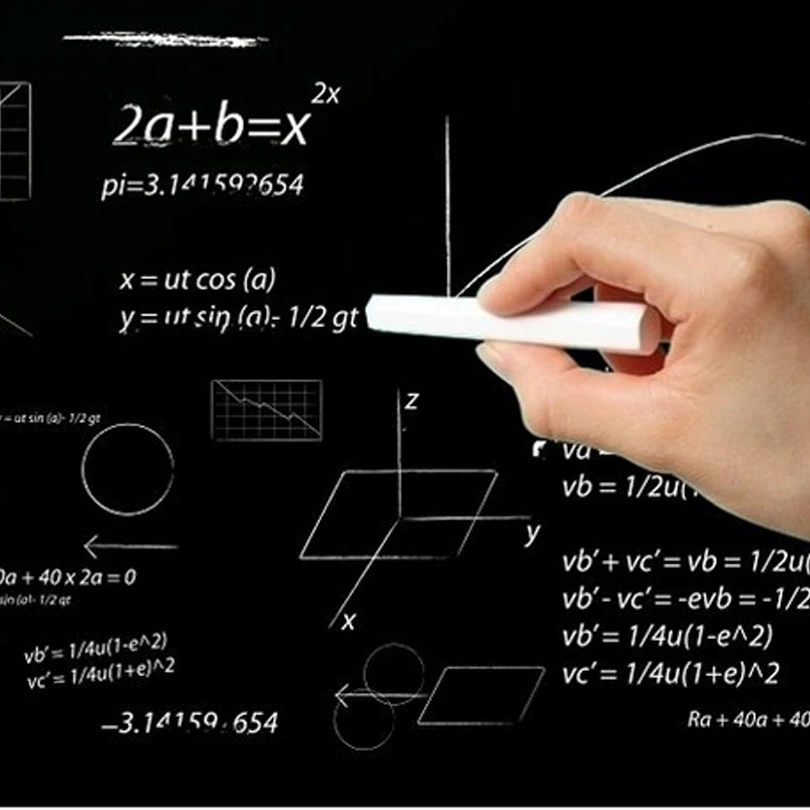 2a+b=x^2x
pi=3.141592654
x = ut cos (a)
y = ut sin (a)- 1/2 gt
y = ut sin (a)- 1/2 gt
z
y
x
va
vb = 1/2u(
vb' + vc' = vb = 1/2u(
vb' - vc' = -evb = -1/2
vb' = 1/4u(1-e^2)
vc' = 1/4u(1+e)^2
0a + 40 x 2a = 0
sin (a)- 1/2 gt
vb' = 1/4u(1-e^2)
vc' = 1/4u(1+e)^2
–3.14159 654
Ra + 40a + 40